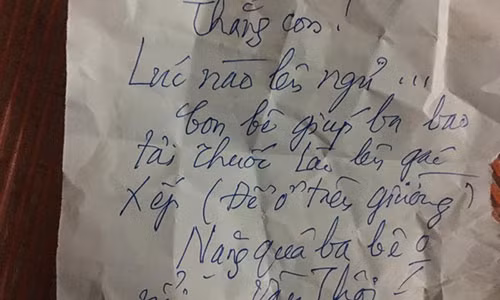 Thằng con!
Lúc nào lên ngủ ...
Con bê giúp ba bao
tải thuốc Lào lên gác
Xếp (Để ở trên giường)
Nặng quá ba bê o
nổi